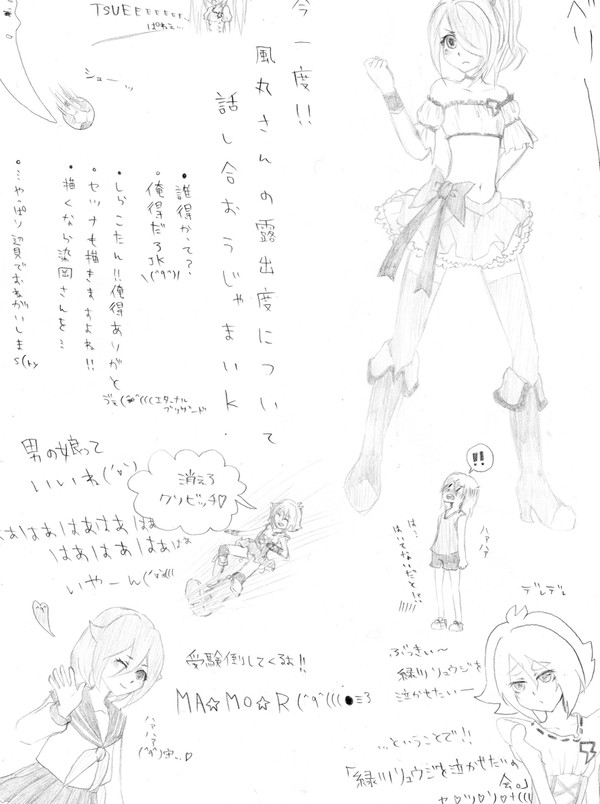 TSUEEEEEEE…
ぱねえ…
ショー…
ベリー
今一度!!
風丸さんの露出度について
話し合おうじゃまいk.
•誰得かって?
俺得だろJK\(^q^)/
•しらこたん!!俺得ありがと
•セツナも描きますよね!!
•描くなら染岡さんを…
•…やっぱり辺見でおねがいしま
男の娘って
いいいね
消えろ
クソビッチ♡
はぁはぁはぁはぁはぁ
はぁはぁはぁはぁ
いやーん
!!
ハァハァ
は…
はいてないだと!?
デレデレ
受験倒してくるお!!
MA☆MO☆R(^q^(((●≡3
ハァ
ハァ
ぶっちぃ〜
緑川リュウジを
泣かせたいー
…ということで!!
「緑川リュウジを泣かせたいの
会。」